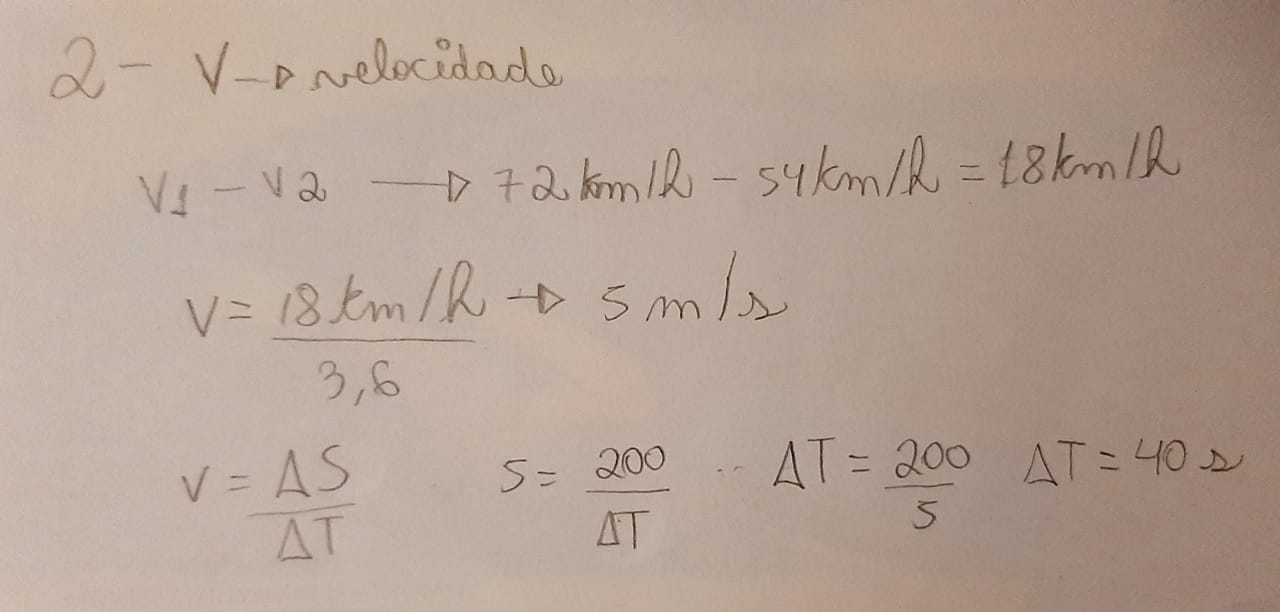 2 - V → velocidade
V1 - V2 → 72 km/h - 54 km/h = 18 km/h
V = 18 km/h / 3,6 → 5 m/s
V = ΔS / ΔT 5 = 200 / ΔT ∴ ΔT = 200 / 5 ΔT = 40 s